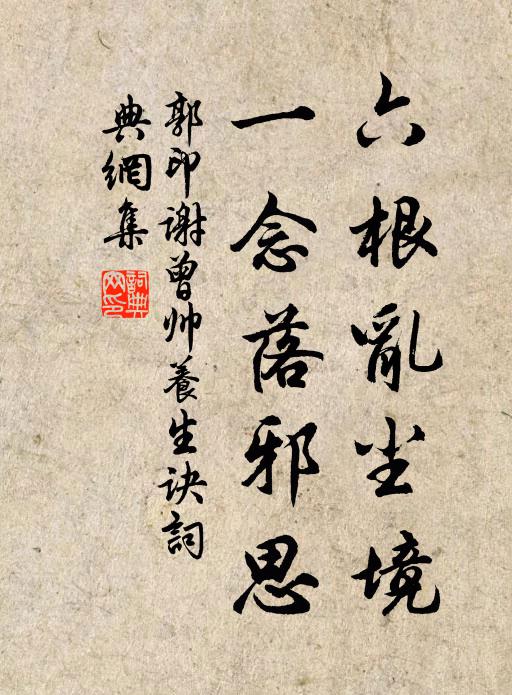 六根亂尘境
一念落邪思
郭印谢曾帅養生诀詞
典網集
詞典网印